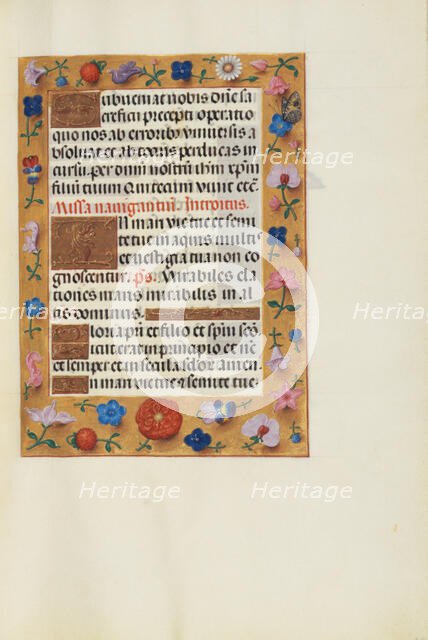 abueniat nobis dn̄e sa
crificii precepti operatio
quo nos ab erroribꝰ vniuersis a
bsoluat et ab eternis perducas in
cursu. per dnm nostrum ihm xp̄m
filiū tuum Qui tecum viuit etc̄.
Missa nauigantiū. Introitus.
In mari vie tue et semi
te tue in aquis multis
et vestigia tua non co
gnoscentur. p̄s. Mirabiles ela
tiones maris mirabilis in al
tis dominus.
Gloria pri et filio et spiri sc̄o
Sicut erat in principio et nc̄
et semper et in secula sclor̄ amen.
In mari vie tue et semite tue.
Heritage
Heritage
Heritage
Heritage
Heritage
Heritage